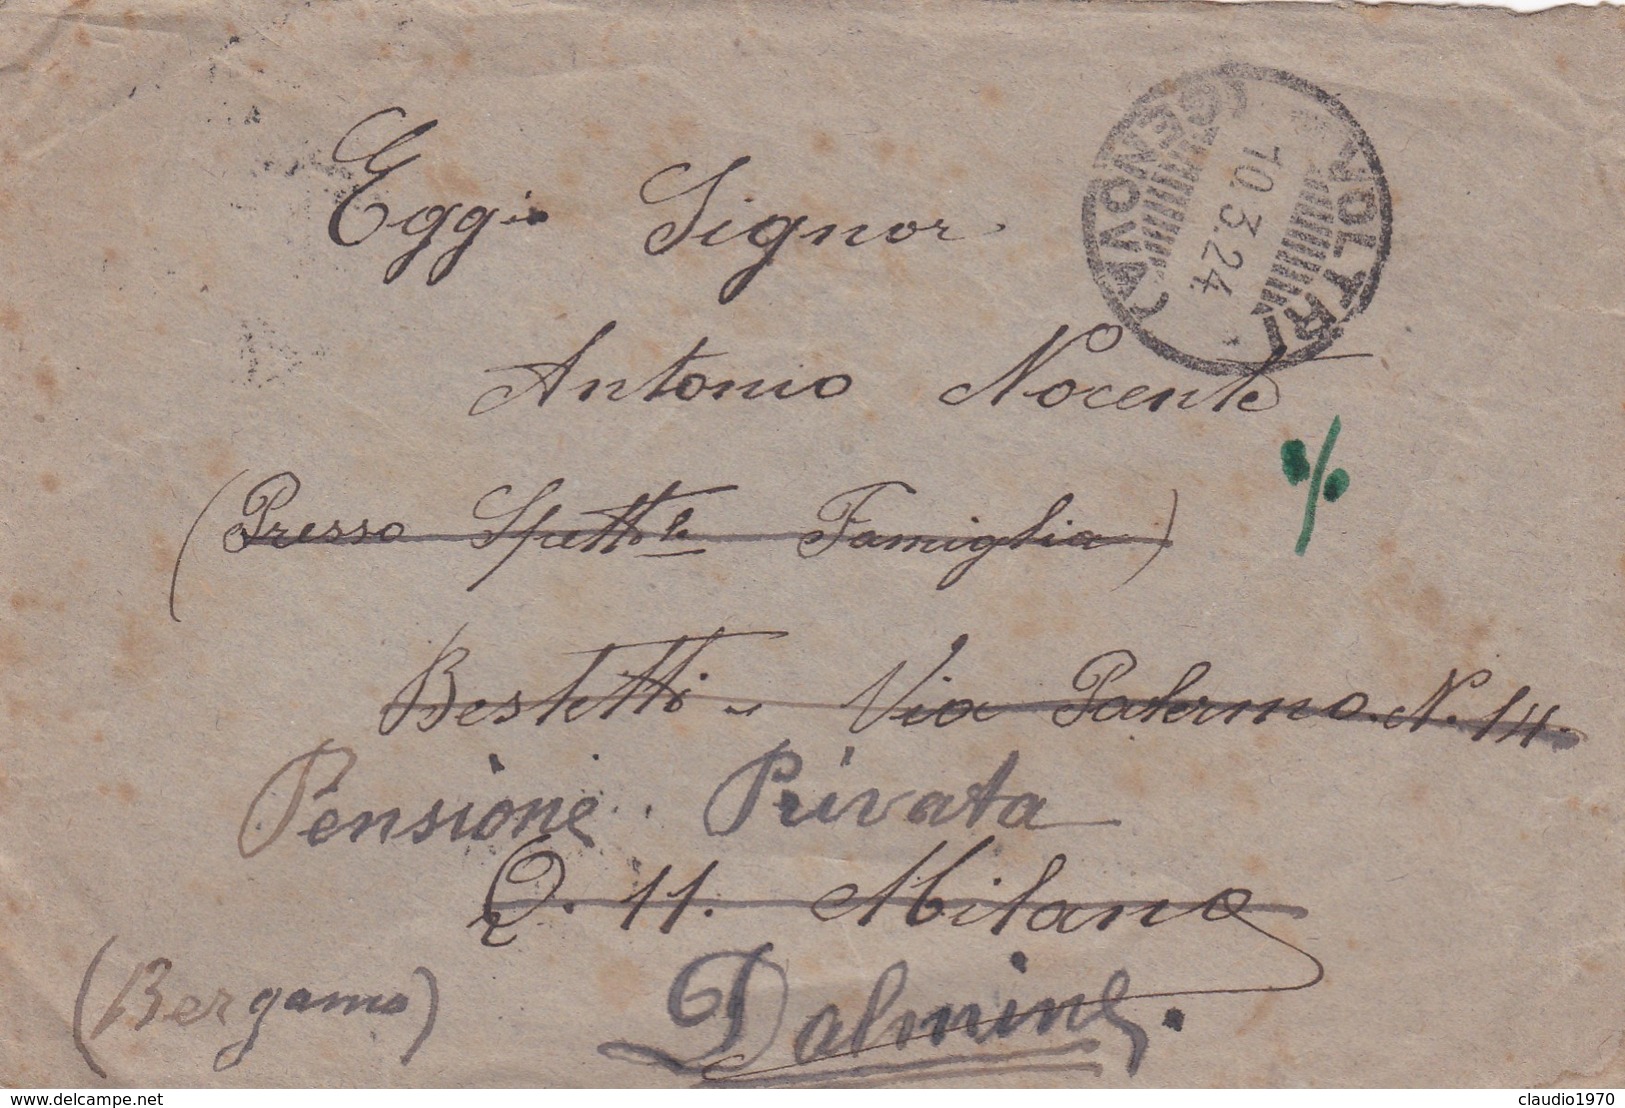 VOLTRI
(GENOVA)
10.3.24
Egg.io Signor
Antonio Nocente
(Presso Spett.le Famiglia)
Bestetti - Via Palermo. N. 14.
Pensione. Privata
Q. 11. Milano
(Bergamo)
Dalmine.
www.delcampe.net
claudio1970